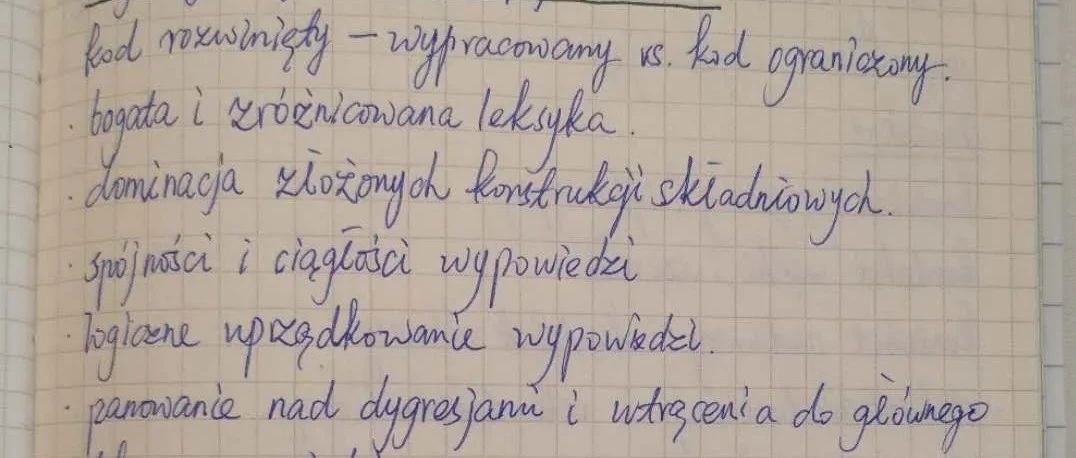 kod rozwinięty – wypracowany vs. kod ograniczony.
· bogata i zróżnicowana leksyka.
· dominacja złożonych konstrukcji składniowych.
· spójności i ciągłości wypowiedzi
· logiczne uprządkowanie wypowiedzi.
· panowanie nad dygresjami i wtrącenia do głównego